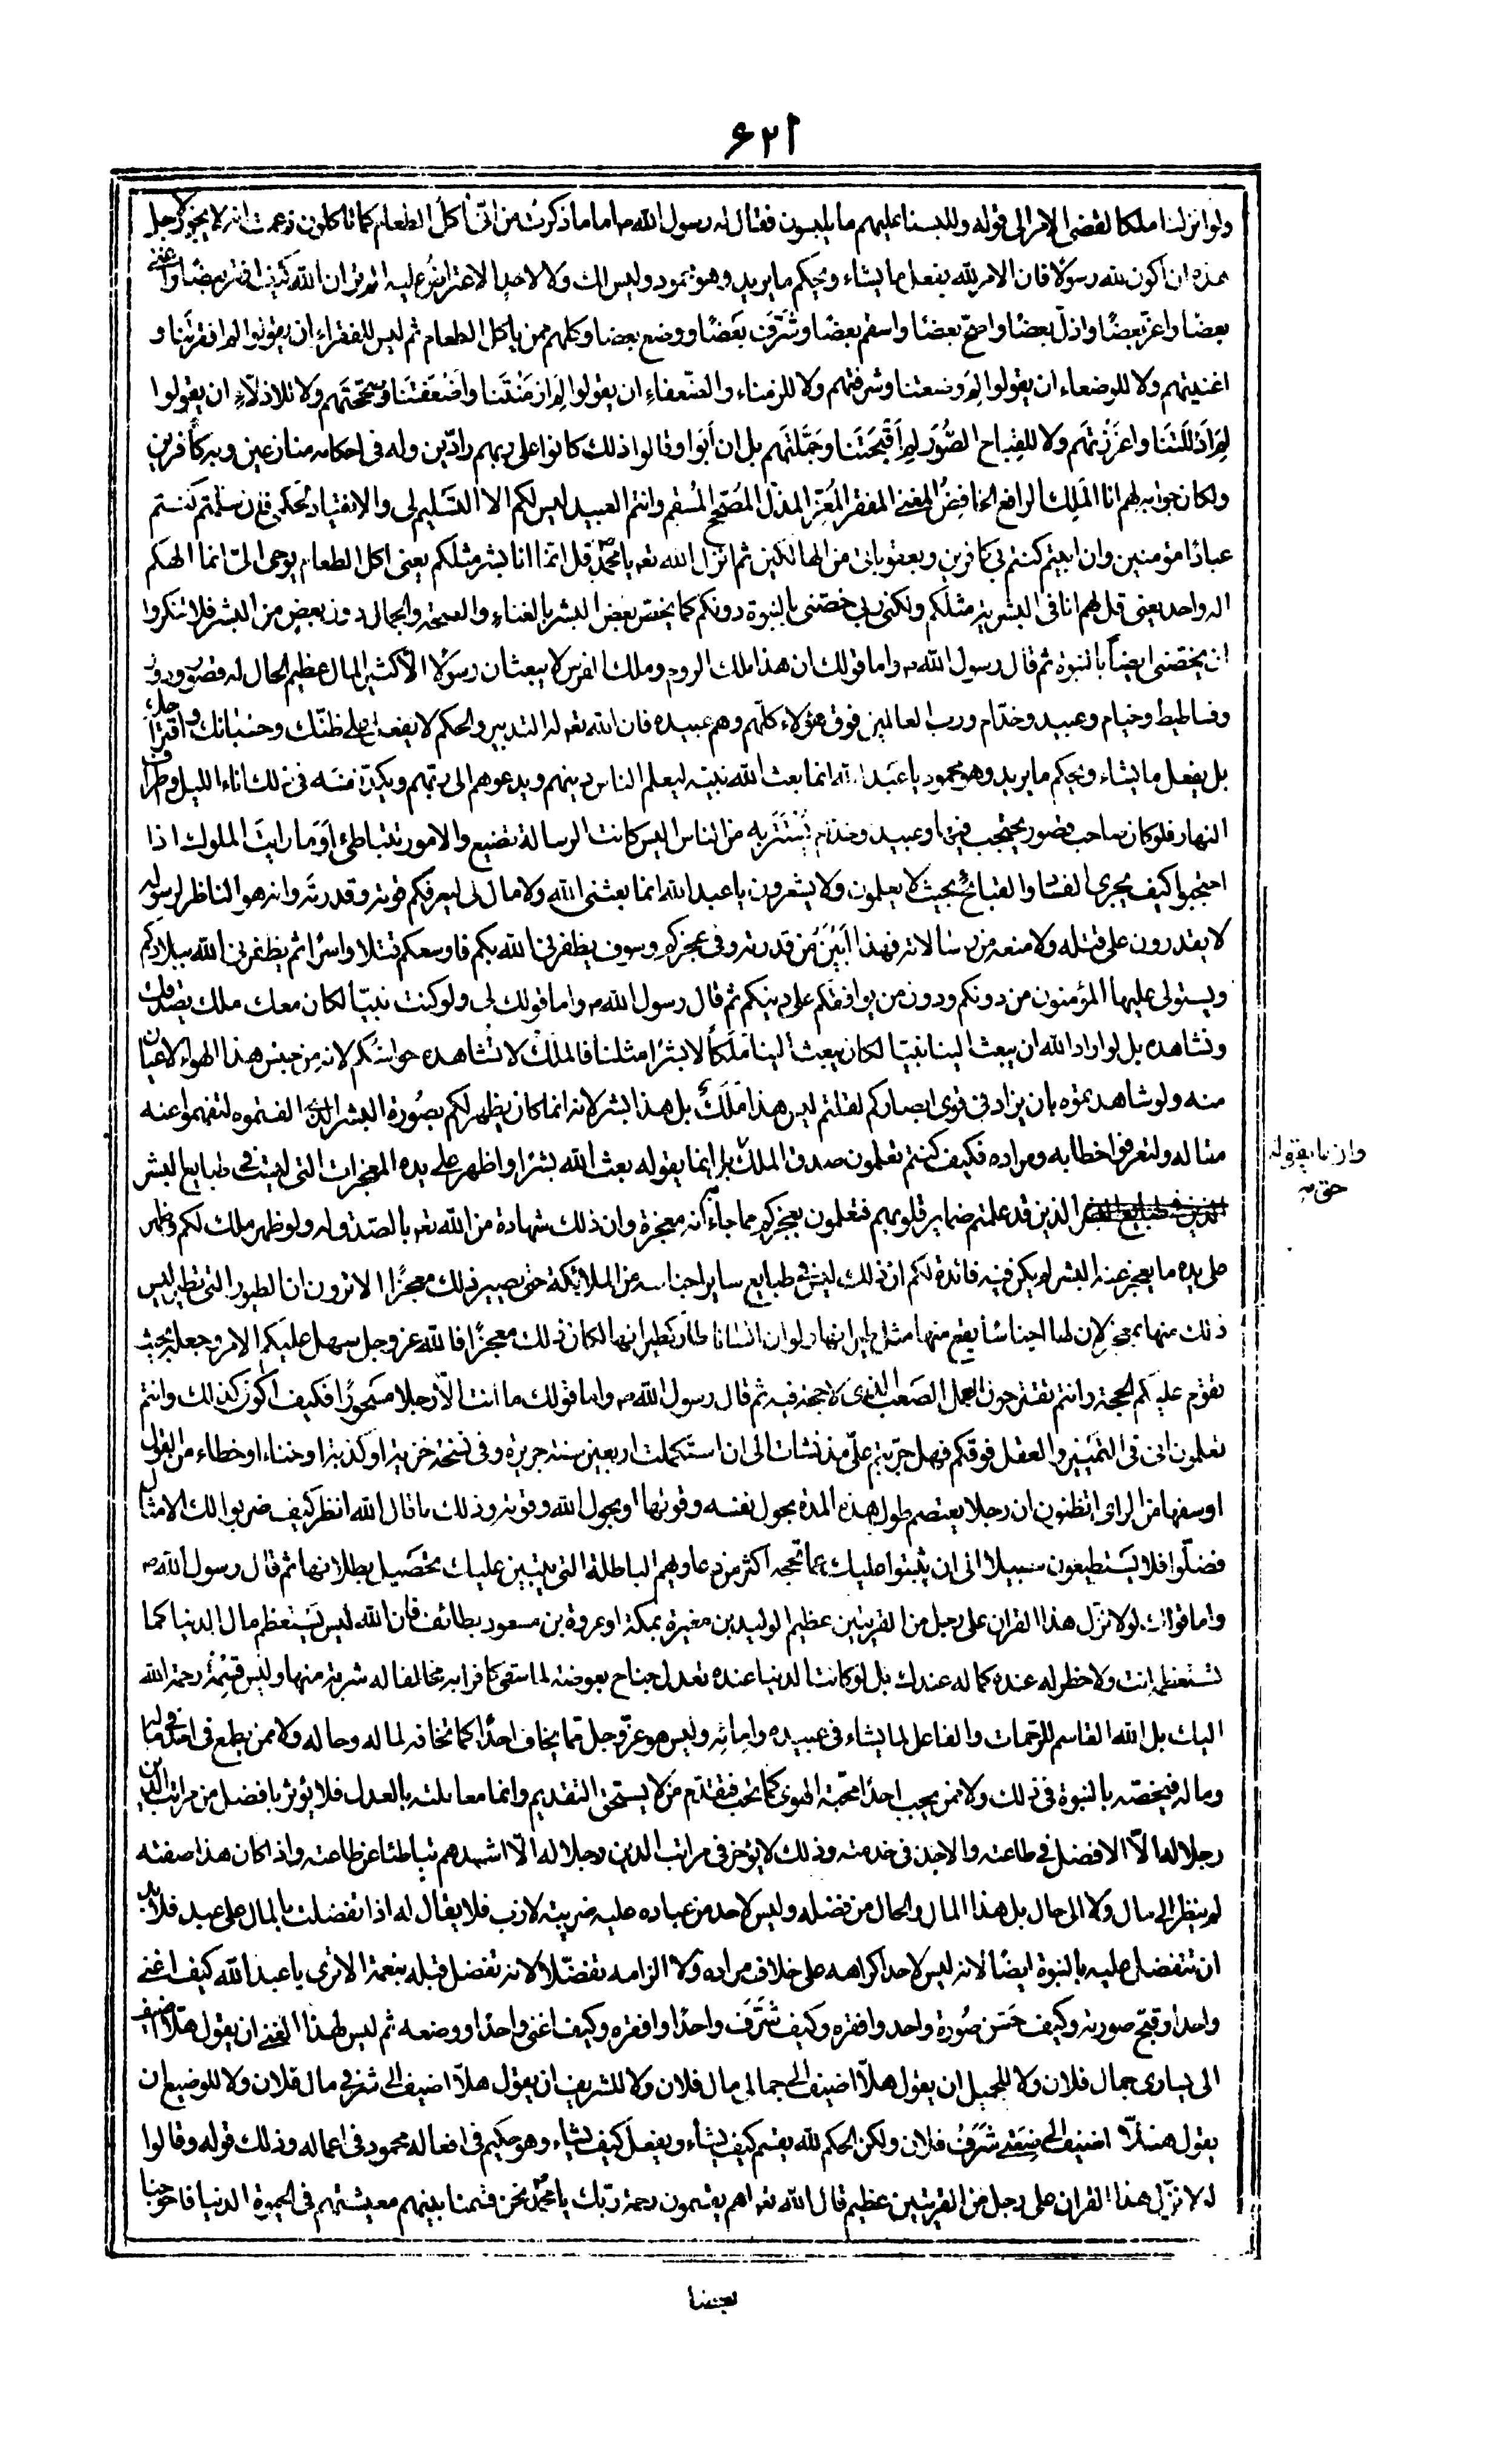 ۶۲۱
ولو انزلنا ملكا لقضى الامر الى قوله وللبسنا عليهم ما يلبسون فقال له رسول الله ص اما ما ذكرت من انّى اٰكل الطعام كما تاكلون وزعمت انه لا يجوز لاجل
هذه ان اكون لله رسولًا فان الامر لله يفعل ما يشاء ويحكم ما يريد وهو محمود وليس لك ولا لاحد الاعتراض عليه الم تر ان الله كيف افقر بعضًا واغنى
بعضًا واعزّ بعضًا واذلّ بعضًا واصحّ بعضًا واسقم بعضًا وشَرَّفَ بَعَضًا ووضع بعضا وكلهم ممن ياكل الطعام ثم ليس للفقراء ان يقولوا لم افقرتنا و
اغنيتهم ولا للوضعاء ان يقولوا لِمَ وضعتنا وشرفتهم ولا للزمناء والضّعفاءِ ان يقولوا لِمَ ازمَنْتَنا واَضْعَفتَنا وصَحّحتَهم ولا للاذلّاءِ ان يقولوا
لِمَ اَذلَلتَنَا واعزَزتهم ولا للقِباحِ الصُّوَر لِم اَقْبَحتَنا وجَمَّلتَهم بل ان اَبَوا وقالوا ذلك كانوا على ربهم رادّين وله فى احكامه منازعين وبه كافرين
ولكان جوابه لهم انا المَلِك الرافع الخافِضُ المغنى المفقر المُعِزّ المذلّ المُصَحّح المُسقِم وانتم العبيد ليس لكم الا التسَليم لى والانقياد لحكمى فان سلّمتم كنتم
عبادًا مؤمنين وان ابيتم كنتم بى كافرين وبعقوباتى من الهالكين ثم انزل الله تعه يا محمّد قل انما انا بشر مثلكم يعنى اكل الطعام يوحى الىّ انما الهكم
اله واحد يعنى قل لهم انا فى البشريه مثلكم ولكنّ ربى خصّنى بالنبوة دونكم كما يخصّ بعض البشر بالغناءِ والصحة والجمال دون بعض من البشر فلا تنكروا
ان يختصّنى ايضاً بالنبوة ثم قال رسول الله ص واما قولك ان هذا ملك الروم وملك الفرس لا يبعثان رسولًا الّا كثير المال عظيم الحال له قصور ودور
وفساطيط وخيام وعبيد وخدّام وربّ العالمين فوق هؤلاء كلّهم وهم عبيده فان الله تعه له التدبير والحكم لا يفعل على ظنّك وحسْبانك ولا اقتراحك
بل يفعل ما يشاء ويحكم ما يريد وهو محمود يا عَبد الله انما بعث الله نبيّه ليعلم الناس دينهم ويدعوهم الى ربهم ويكدّ نفسَه فى ذلك اناء الليل وطرفى
النهار فلو كان صاحب قصور يحتجب فيها وعبيد وخدّام يَستَتِرُ به من الناس اليس كانت الرسالة تضيع والامور تتباطئ اَوَما رايتَ الملوك اذا
احتجبوا كيف يجرى الفساد والقبائح بحيث لا يعلمون ولا يشعرون يا عبد الله انما بعثنى الله ولا مال لى ليعرفكم قوته وقدرته وانه هو الناظر لرسوله
لا يقدرون على قتله ولا منعه من رسالاته فهذا اَبْيَنُ من قدرته وفى عجزكم وسوف يظفرنى الله بكم فاوسعكم قتلا واسرًا ثم يظفرنى الله ببلادكم
ويستولى عليها المؤمنون من دونكم ودون من يوافقكم على دينكم ثم قال رسول الله ص واما قولك لى ولو كنت نبيًّا لكان معك ملك يصدقك
ونشاهده بل لو اراد الله ان يبعث الينا نبيّا لكان يبعث الينا مَلَكاً لا بشرًا مثلنا فالملك لا تشاهده حواسّكم لانه من جنس هذا الهواء لا عيان
منه ولو شاهدتموه بان يزاد فى قوى ابصاركم لقلتم ليس هذا مَلَكٌ بل هذا بشر لانه انما كان يظهر لكم بصُورة البشر الذى الفتموه لتفهموا عنه
مقاله ولتعرفوا خطابه ومراده فكيف كنتم تعلمون صدق الملك بل انما يقوله بعث الله بشرًا واظهر على يده المعجزات التى ليست فى طبايع البشر
وان ما يقوله
حق صح
الذين قد علمتم ضماير قلوبهم فتعلمون بعجزكم مما جاء انه معجزة وان ذلك شهادة من الله تعه بالصّدق له ولو ظهر ملك لكم وظهر
على يده ما يعجز عنه البشر لم يكن فيه فائدة لكم ان ذلك ليس فى طبايع ساير اجناسه من الملائكة حتى يصير ذلك معجزًا الا ترون ان الطيور التى تطير ليس
ذلك منها بمعجز لان لها اجناسًا يقع منها مثل طيرانها ولو ان انسانا طار كطيرانها لكان ذلك معجزًا فالله عز وجل سهل عليكم الامر وجعله بحيث
تقوم عليكم الحجة وانتم تقترحون العمل الصَعب الذى لا حجة فيه ثم قال رسول الله ص واما قولك ما انت الّا رجلا مسَحورًا فكيف اكون كذلك وانتم
تعلمون انى فى التميّيز والعقل فوقكم فهل جرّبتم علىّ منذ نشات الى ان استكملت اربعين سنة جريرة وخزية او كذبة او خناء او خطاء من القول
او سفها من الراى اتظنون ان رجلا يعتصم طول هذه المدة بحول نفسه وقوتها او بحول الله وقوته وذلك ما قال الله انظر كيف ضربوا لك الامثال
فضلّوا فلا يَستطيعون سبيلا الى ان يثبتوا عليك عما بحجة اكثر من دعاويهم الباطلة التى يتبين عليك تحصَيل بطلانها ثم قال رسول الله ص
واما قولك لولا نزّل هذا القران على رجل من القريتين عظيم الوليد بن مغيرة بمكة او عروة بن مسعود بطائف فان الله ليس يَستَعظم مال الدنيا كما
تستعظمه انت ولا خطر له عنده كما له عندك بل لو كانت الدنيا عنده تعدل جناح بعوضة لما سقى كافرا به مخالفا له شربة منها وليس قسِمَةُ رحمة الله
اليك بل الله القاسم للرّحمات والفاعل لما يشاء فى عبيده وامائه وليس هو عزّ وجل مما يخاف احدًا كما تخافه لماله وحاله ولا ممن يطمع فى احد فى حاله
وماله فيخصّه بالنبوة فى ذلك ولا ممن يحب احدًا محبّة الهوى كما تحب فيقدّم من لا يستحق التقديم وانما معاملته بالعدل فلا يؤثر بافضل من مراتب الدين
رجلا له الّا الافضل فى طاعته والاجدّ فى خدمته وذلك لا يؤخر فى مراتب الدين رجلا له الّا اشدهم تباطئا عن طاعته واذا كان هذا صفته
لم ينظر الى مال ولا الى حال بل هذا المال والحال من فضله وليس لاحد من عباده عليه ضريبة لازب فلا يقال له اذا تفضلت بالمال على عبد فلا بد
ان تتفضل عليه بالنبوة ايضًا لانه ليس لاحد اكراهه على خلاف مراده ولا الزامه تفضّلًا لانه تفضل قبله بنعمة الا ترى يا عبد الله كيف اغنى
واحدا وقبّح صورته وكيف حَسّن صُورة واحد وافقره وكيف شَرَّفَ واحدًا وافقره وكيف اغنى واحدًا ووضعه ثم ليس لهذا الغنى ان يقول هلّا اضيف
الى يسارى جمال فلان ولا للجميل ان يقول هلّا اضيف الى جمالى مال فلان ولا للشريف ان يقول هلّا اضيف الى شرفى مال فلان ولا للوضيع ان
يقول هلّا اضيف الى ضِعَتى شَرَفُ فلان ولكن الحكم لله يقسم كيف يشاء ويفعل كيف يشاء وهو حكيم فى افعاله محمود فى اعماله وذلك قوله وقالوا
لولا نزّل هذا القران على رجل من القريتين عظيم قال الله تعه اهم يقسمون رحمة ربّك يا محمّد نحن قسمنا بينهم معيشتهم فى الحيوة الدنيا فاحوجنا
بعضنا